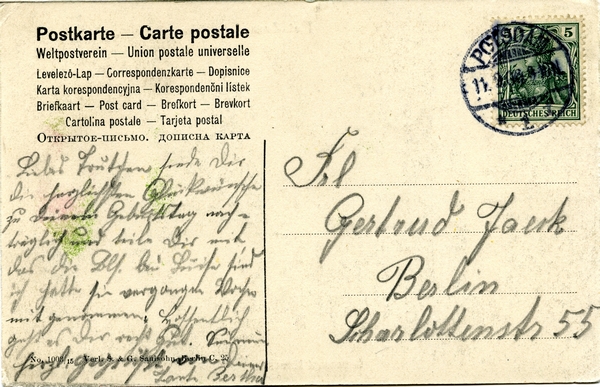 Postkarte — Carte postale
Weltpostverein — Union postale universelle
Levelező-Lap — Correspondenzkarte — Dopisnice
Karta korespondencyjna — Korespondenční lístek
Briefkaart — Post card — Brefkort — Brevkort
Cartolina postale — Tarjeta postal
Открытое-письмо. дописна карта
POTSDAM
11.
5
DEUTSCHES REICH
Liebes Trutchen, sende Dir
die herzlichsten Glückwünsche
zu deinem Geburtstag nach-
träglich und teile Dir mit
das die bei sind
ich hatte sie vergangene Woche
mitgenommen. Hoffentlich
geht es Dir recht gut.
Tante Bertha
No. 1003/ Verl. S. & G. Saulsohn, Berlin C. 25
Frl
Gertrud Jaeck
Berlin
Scharlottenstr 55